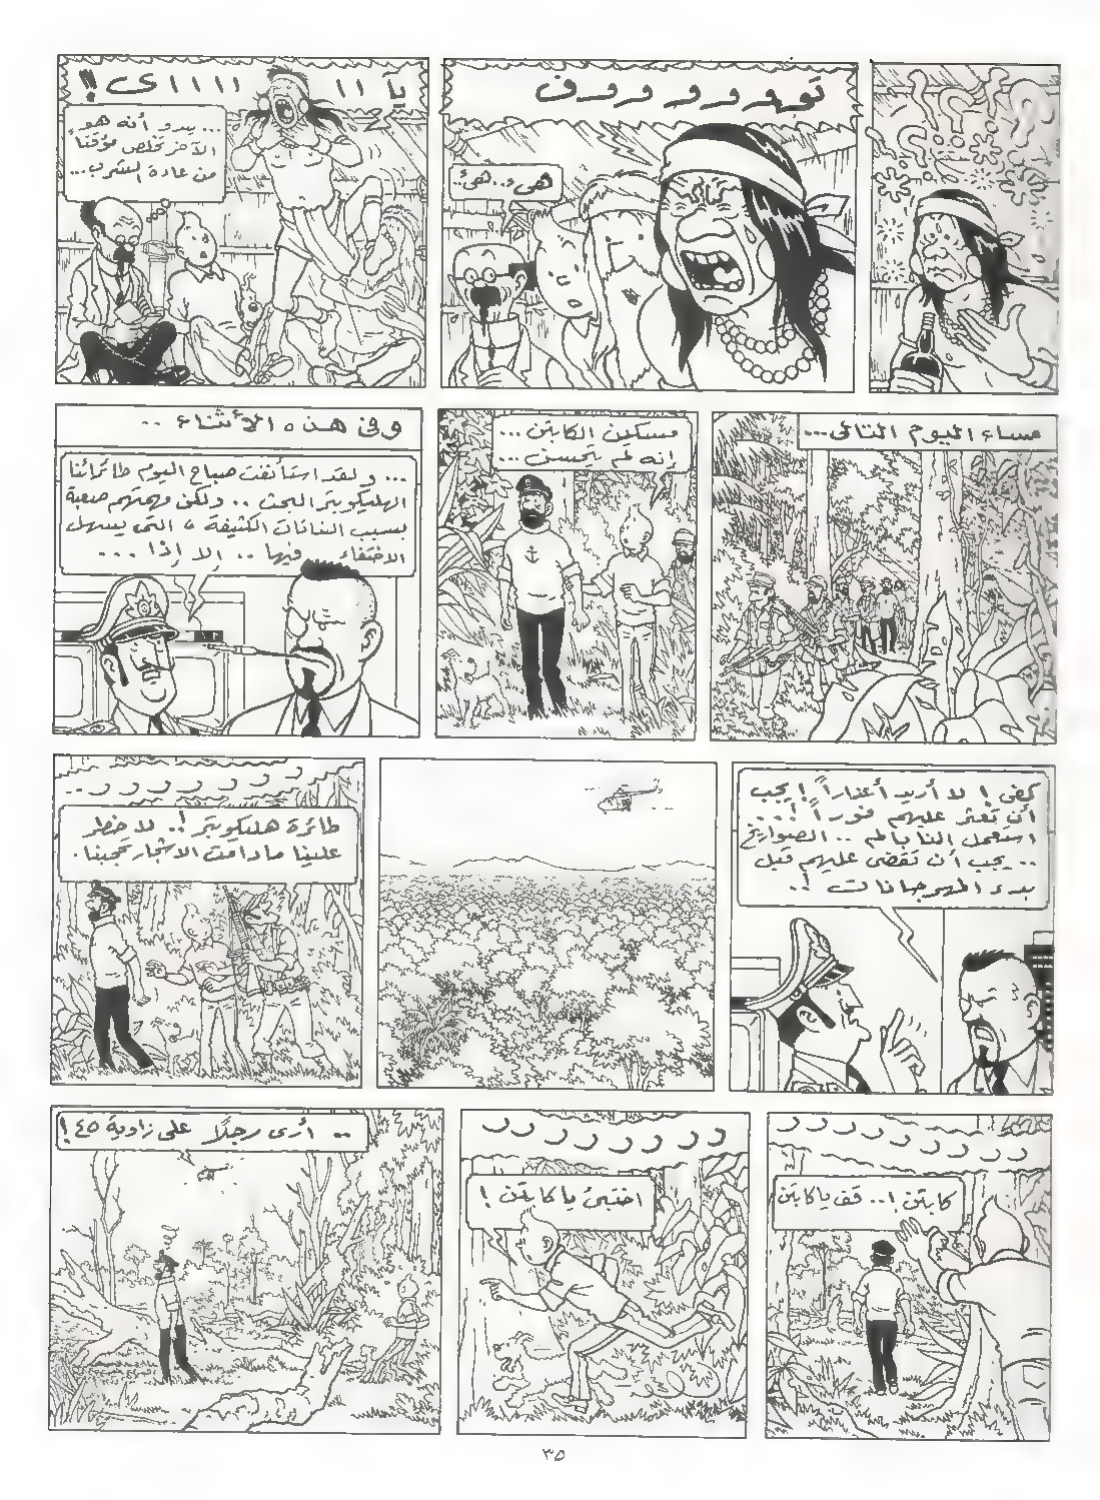 تفو و و و و و و ف
هئ.. هئ..
يآ ا ا ا ا ا ا ى !!
... يبدو أنه هو
الآخر تخلص مؤقتا
من عادة الشرب...
مساء اليوم التالى...
مسكين الكابتن ...
إنه لم يتحسن ...
وفى هذه الأثناء ..
... ولقد استأنفت صباح اليوم طائراتنا
الهليكوبتر البحث .. ولكن مهمتهم صعبة
بسبب النباتات الكثيفة ، التى يسهل
الاختفاء فيها .. إلا إذا ...
كفى ! لا أريد أعذاراً ! يجب
أن تعثر عليهم فوراً ! ...
استعمل النابالم .. الصواريخ
.. يجب أن تقضى عليهم قبل
بدء المهرجانات !..
ر ر ر ر ر ر ر ..
طائرة هليكوبتر !.. لا خطر
علينا مادامت الاشجار تحجبنا .
ر ر ر ر ر ر ر ر
كابتن !.. قف يا كابتن
ر ر ر ر ر ر ر ر
اختبئ يا كابتن !
.. أرى رجلاً على زاوية ٤٥ !
٣٥